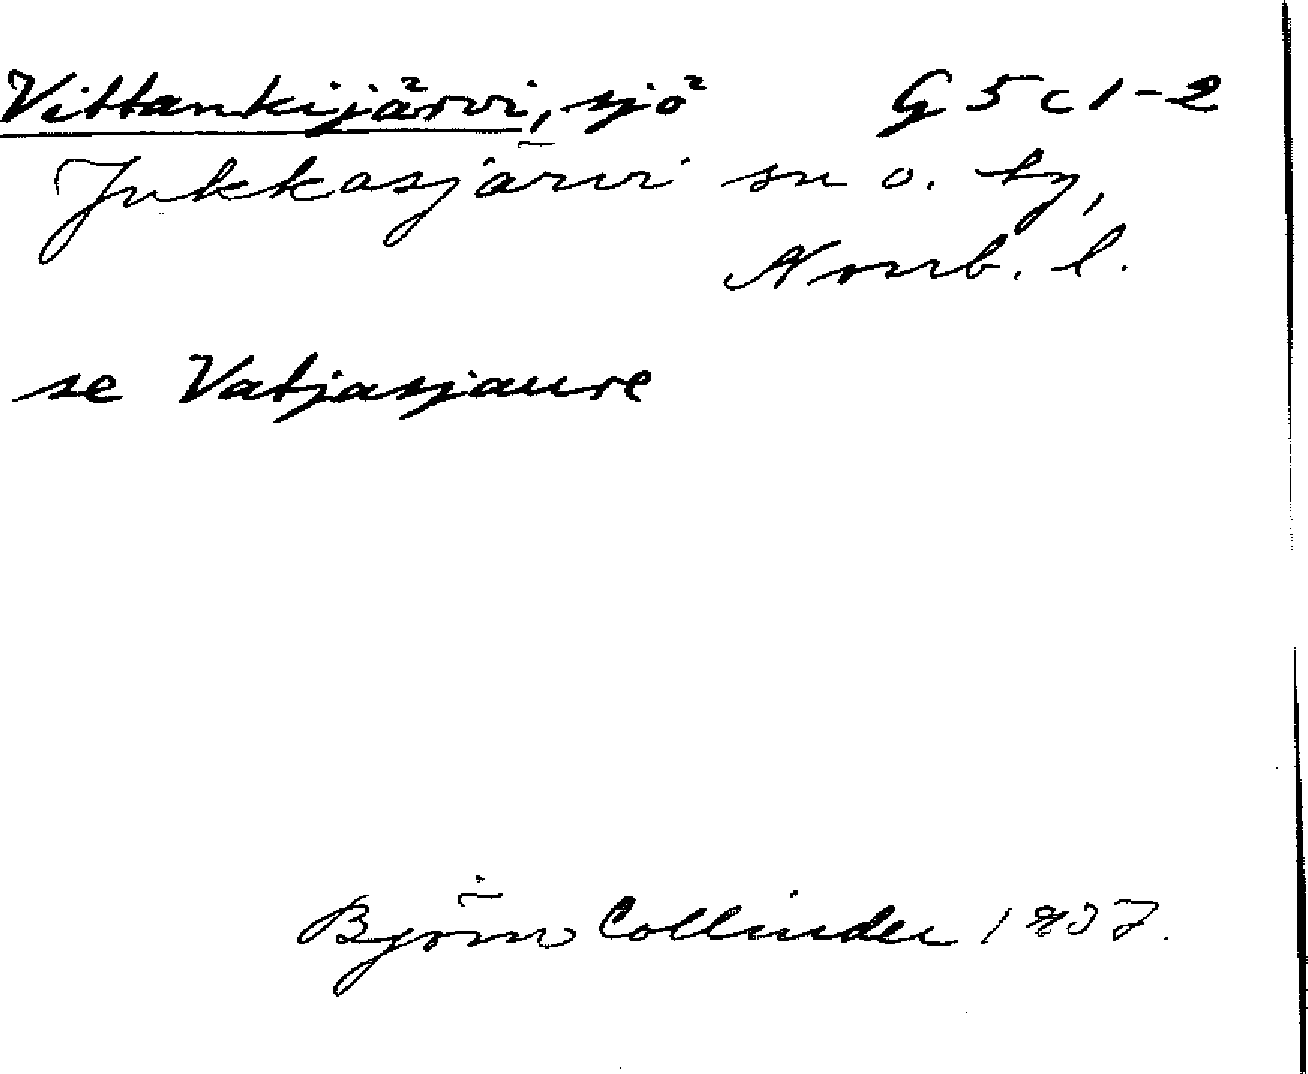 Vittankijärvi, sjö G 5 c 1-2
Jukkasjärvi sn o. tg,
Norrb. l.
se Vatjasjaure
Björn Collinder